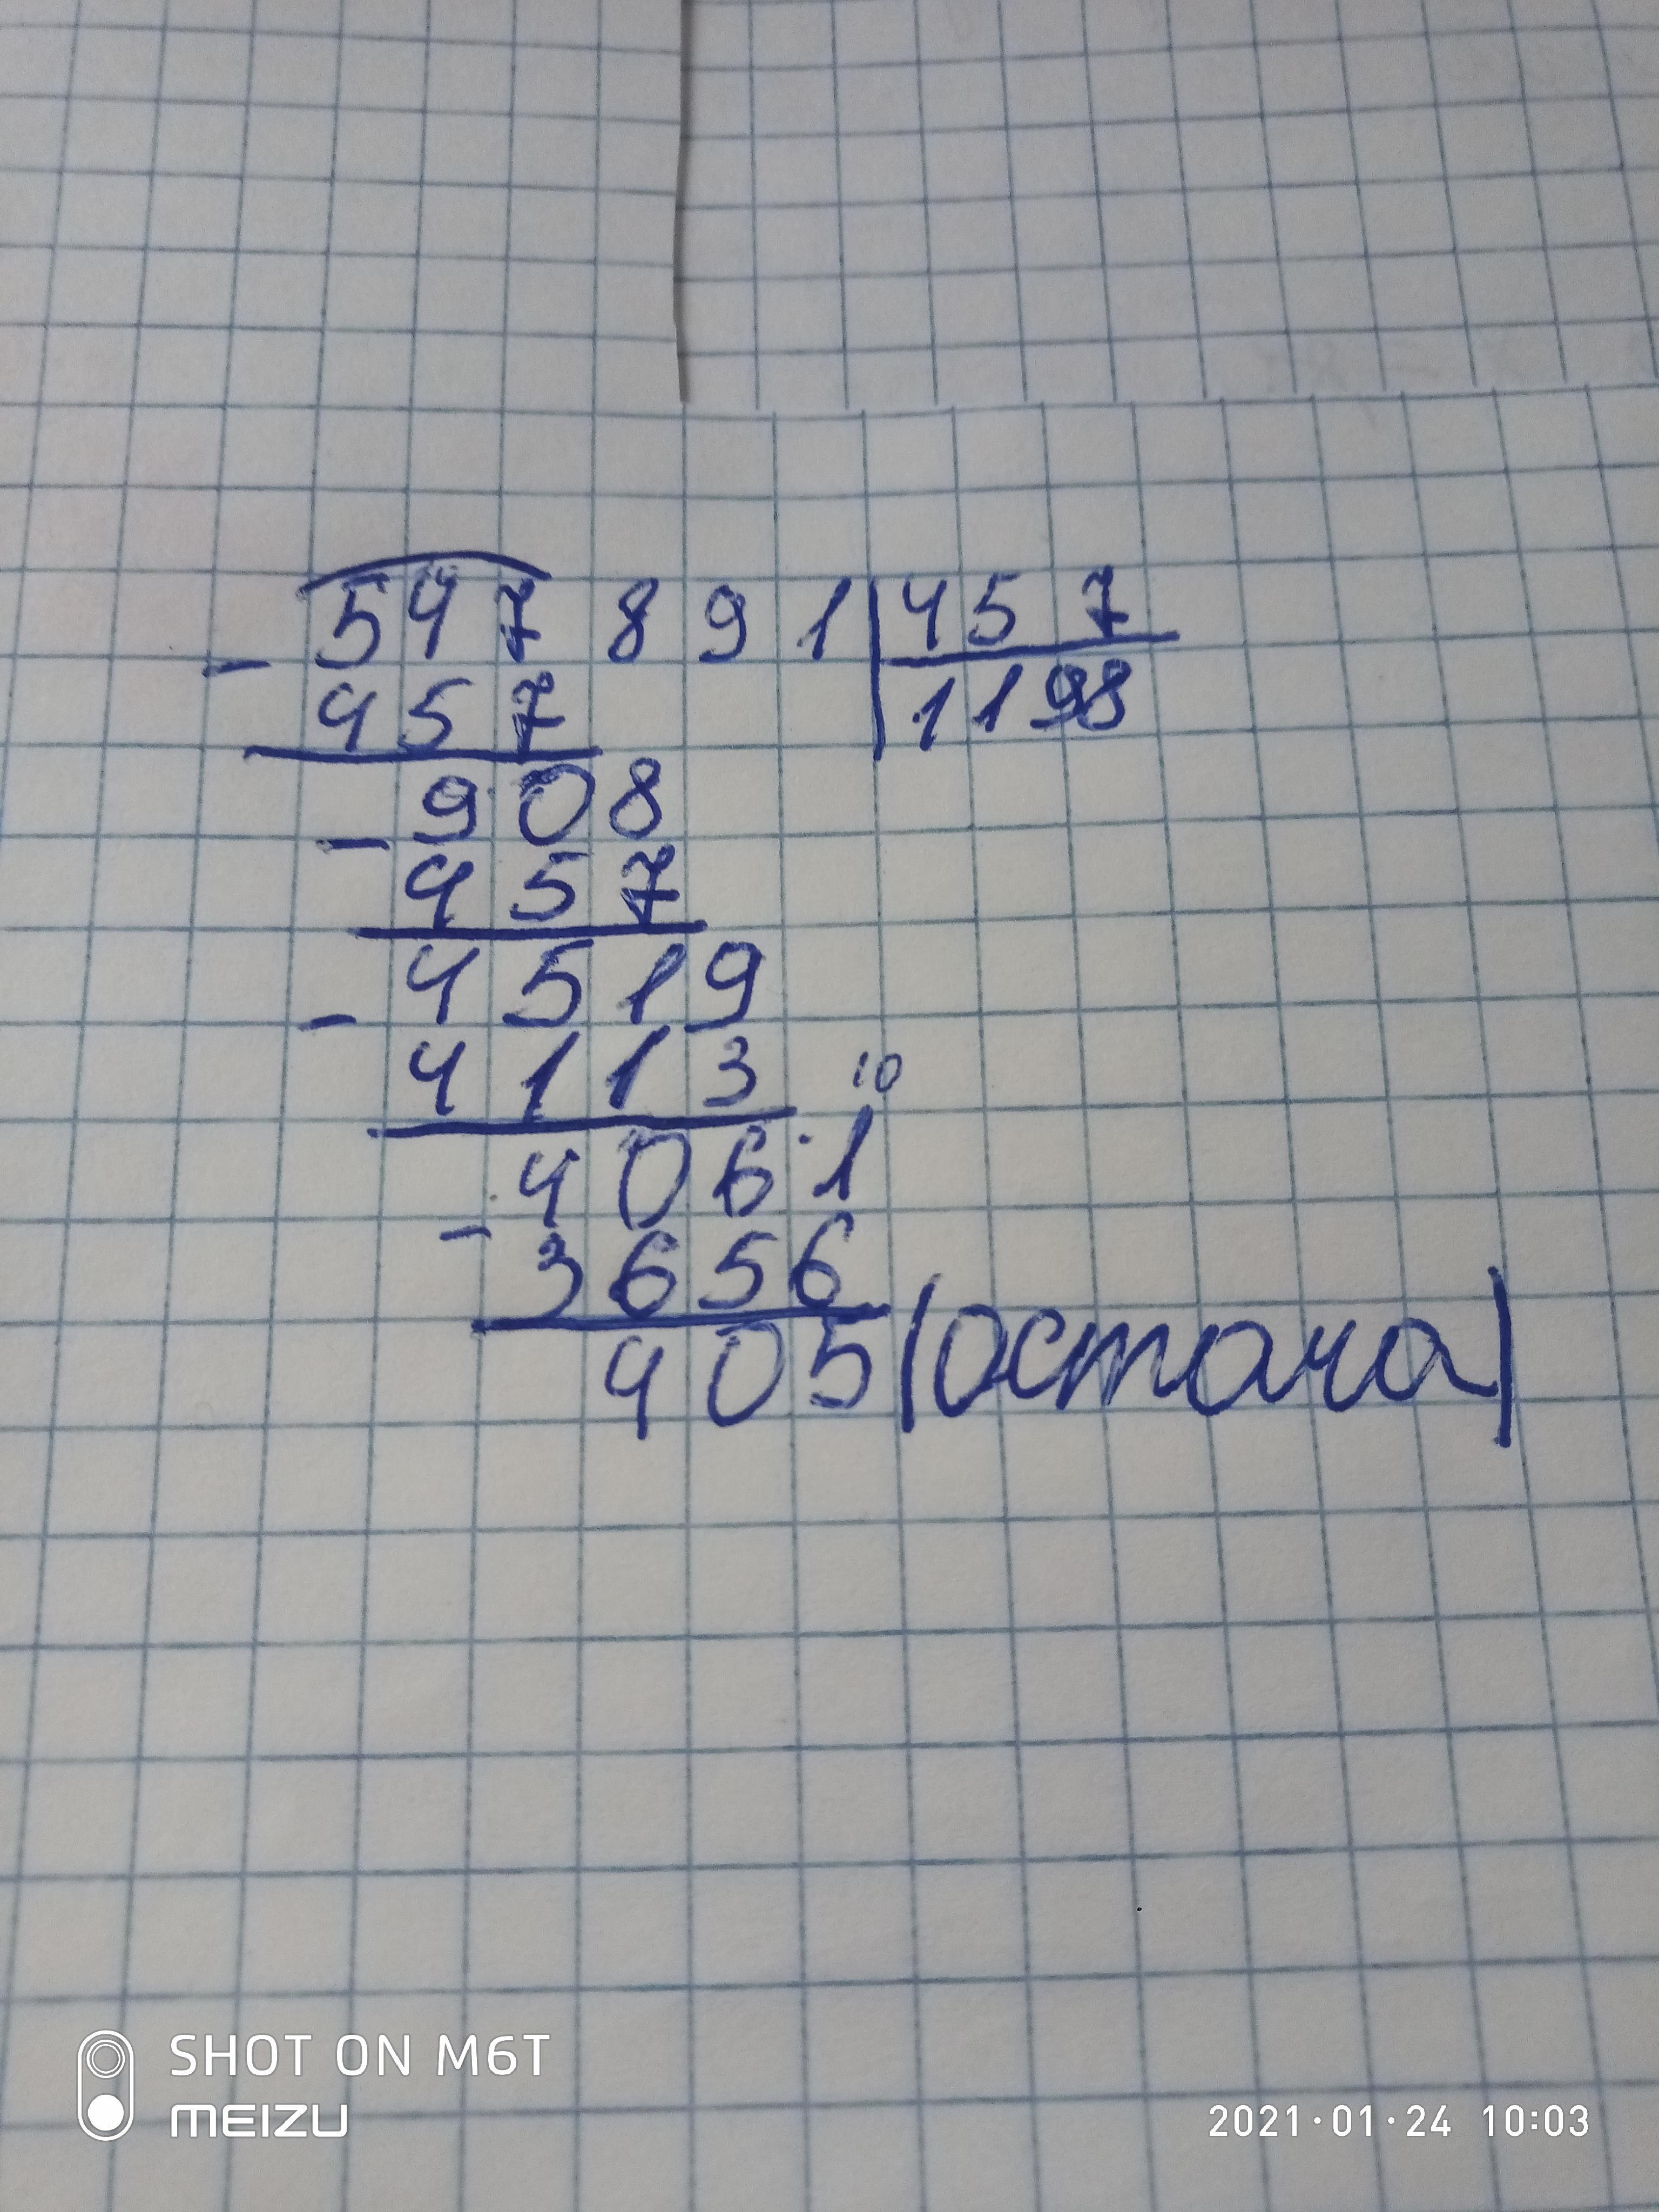 547891|457
- 457 1198
908
- 457
4519
- 4113
10
4061
- 3656
405 (остача)
SHOT ON M6T
MEIZU
2021·01·24 10:03